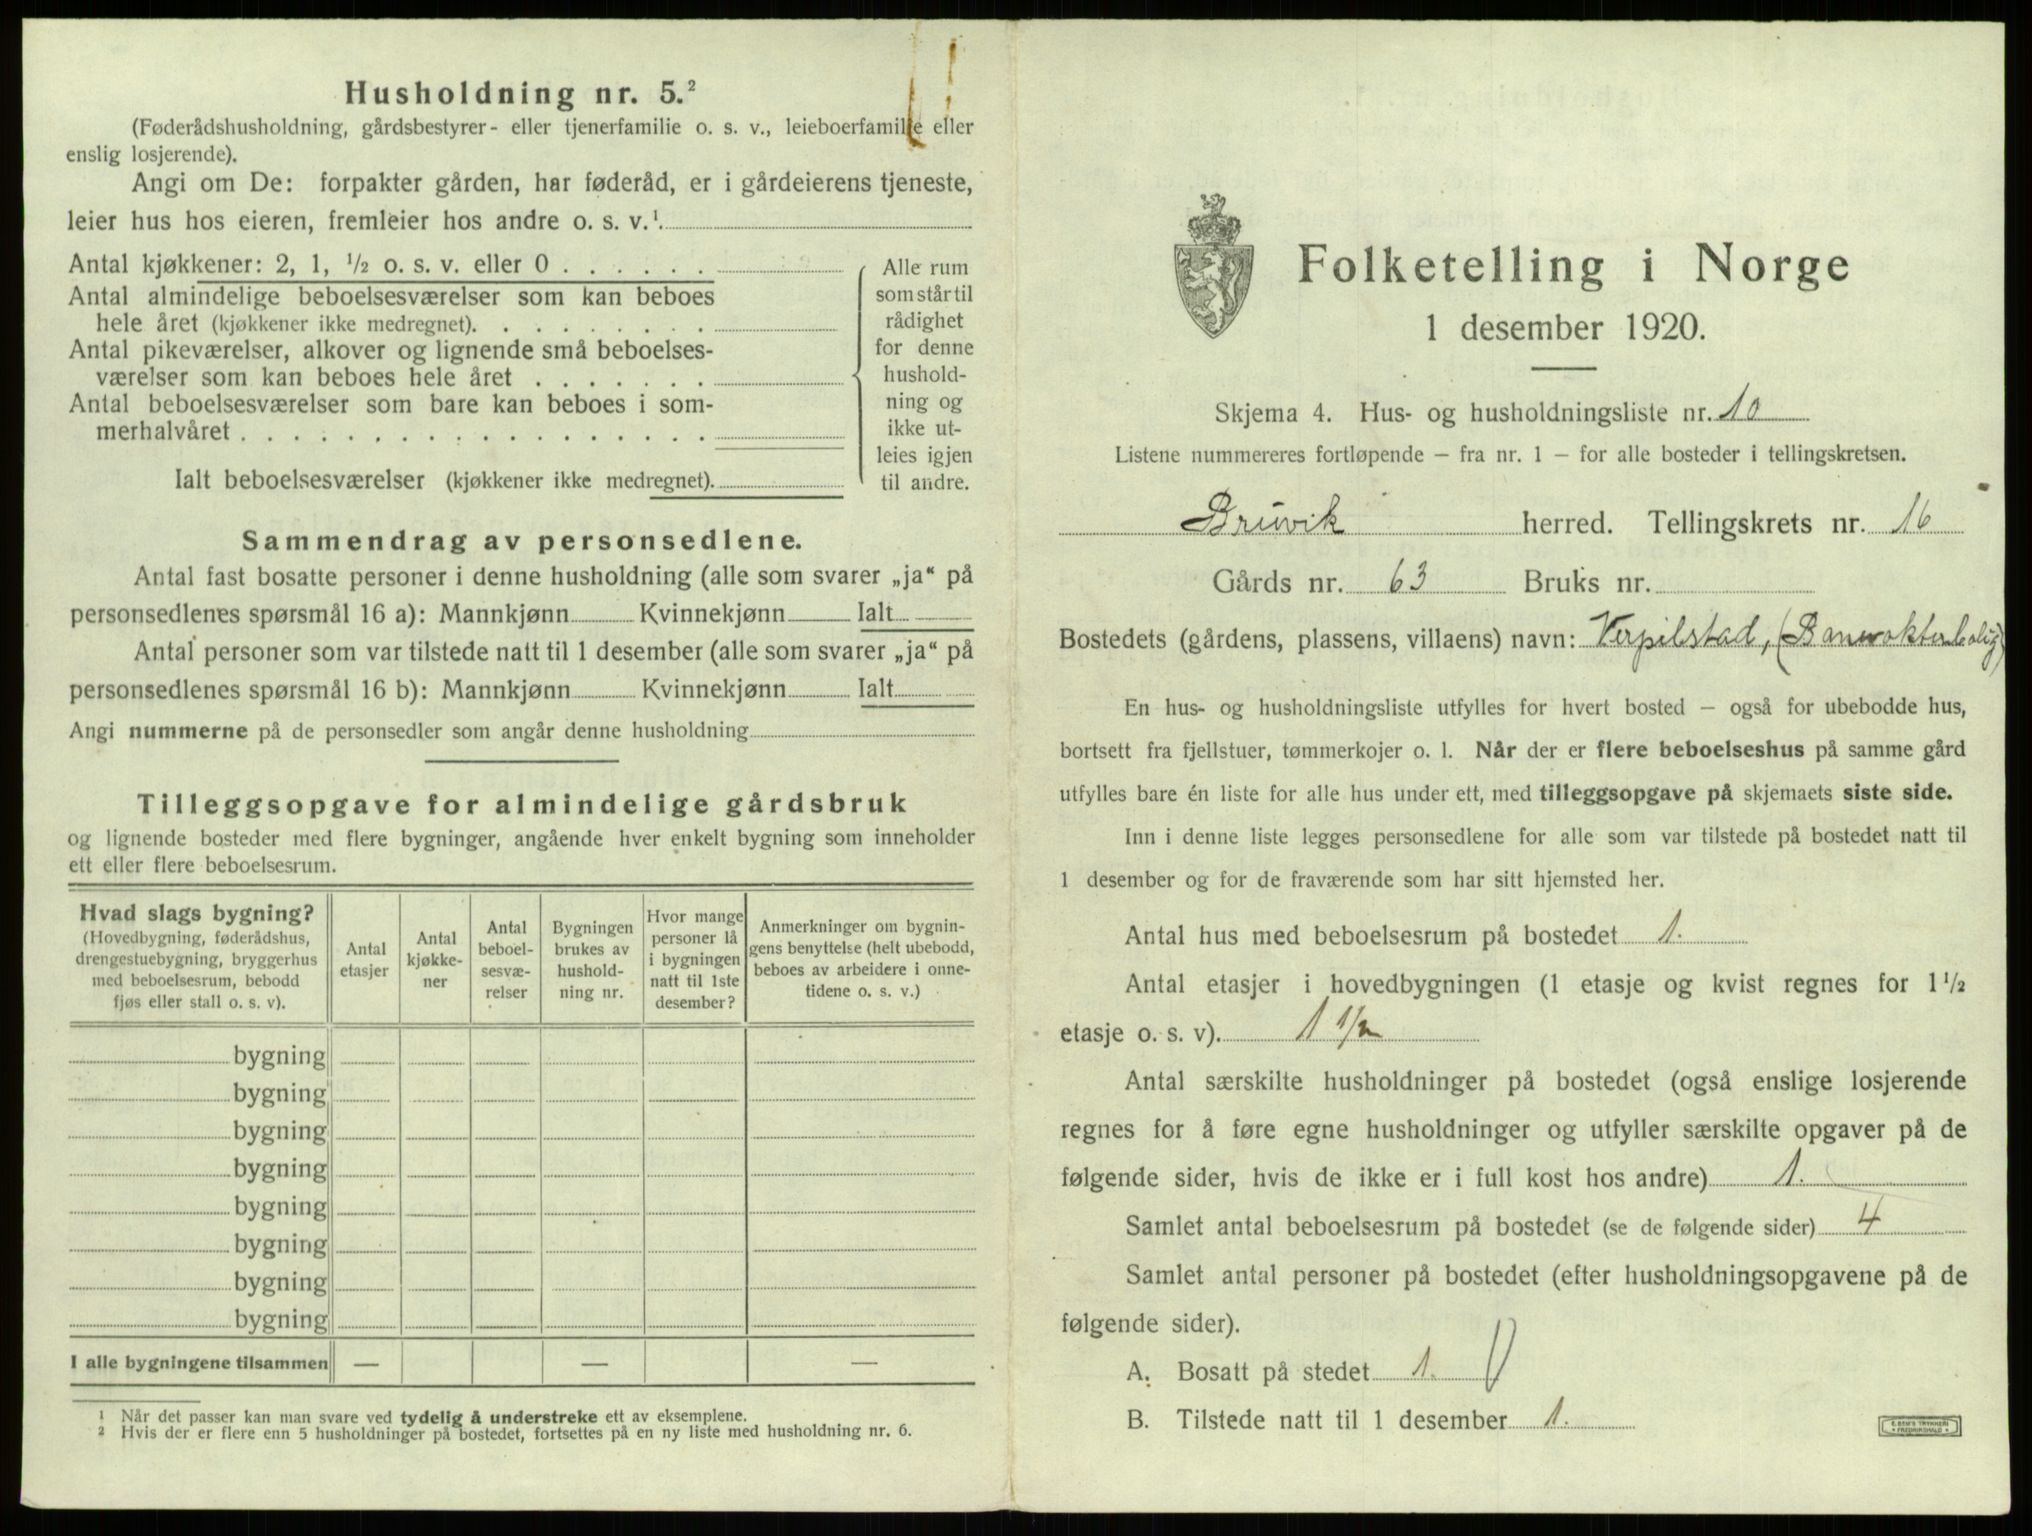 Husholdning nr. 5.²
(Føderådshusholdning, gårdsbestyrer- eller tjenerfamilie o. s. v., leieboerfamilie eller
enslig losjerende).
Angi om De: forpakter gården, har føderåd, er i gårdeierens tjeneste,
leier hus hos eieren, fremleier hos andre o. s. v.¹.
Antal kjøkkener: 2, 1, ½ o. s. v. eller 0 . . . . . .
Antal almindelige beboelsesværelser som kan beboes
hele året (kjøkkener ikke medregnet). . . . . . . . .
Antal pikeværelser, alkover og lignende små beboelses-
værelser som kan beboes hele året . . . . . . .
Antal beboelsesværelser som bare kan beboes i som-
merhalvåret . . . . . . . . . . . . . . . . . .
Ialt beboelsesværelser (kjøkkener ikke medregnet).
Alle rum
som står til
rådighet
for denne
hushold-
ning og
ikke ut-
leies igjen
til andre.
Sammendrag av personsedlene.
Antal fast bosatte personer i denne husholdning (alle som svarer „ja“ på
personsedlenes spørsmål 16 a): Mannkjønn Kvinnekjønn Ialt
Antal personer som var tilstede natt til 1 desember (alle som svarer „ja“ på
personsedlenes spørsmål 16 b): Mannkjønn Kvinnekjønn Ialt
Angi nummerne på de personsedler som angår denne husholdning
Tilleggsopgave for almindelige gårdsbruk
og lignende bosteder med flere bygninger, angående hver enkelt bygning som inneholder
ett eller flere beboelsesrum.
Hvad slags bygning?
(Hovedbygning, føderådshus,
drengestuebygning, bryggerhus
med beboelsesrum, bebodd
fjøs eller stall o. s. v).
Antal
etasjer
Antal
kjøkke-
ner
Antal
beboel-
sesvæ-
relser
Bygningen
brukes av
hushold-
ning nr.
Hvor mange
personer lå
i bygningen
natt til 1ste
desember?
Anmerkninger om bygnin-
gens benyttelse (helt ubebodd,
beboes av arbeidere i onne-
tidene o. s. v.)
bygning
bygning
bygning
bygning
bygning
bygning
bygning
bygning
I alle bygningene tilsammen — — —
¹ Når det passer kan man svare ved tydelig å understreke ett av eksemplene.
² Hvis der er flere enn 5 husholdninger på bostedet, fortsettes på en ny liste med husholdning nr. 6.
Folketelling i Norge
1 desember 1920.
Skjema 4. Hus- og husholdningsliste nr. 10
Listene nummereres fortløpende – fra nr. 1 – for alle bosteder i tellingskretsen.
Bruvik herred. Tellingskrets nr. 16
Gårds nr. 63 Bruks nr.
Bostedets (gårdens, plassens, villaens) navn: Verpilstad, (Banevokterbolig)
En hus- og husholdningsliste utfylles for hvert bosted – også for ubebodde hus,
bortsett fra fjellstuer, tømmerkojer o. l. Når der er flere beboelseshus på samme gård
utfylles bare én liste for alle hus under ett, med tilleggsopgave på skjemaets siste side.
Inn i denne liste legges personsedlene for alle som var tilstede på bostedet natt til
1 desember og for de fraværende som har sitt hjemsted her.
Antal hus med beboelsesrum på bostedet 1.
Antal etasjer i hovedbygningen (1 etasje og kvist regnes for 1½
etasje o. s. v). 1 1/2
Antal særskilte husholdninger på bostedet (også enslige losjerende
regnes for å føre egne husholdninger og utfyller særskilte opgaver på de
følgende sider, hvis de ikke er i full kost hos andre) 1.
Samlet antal beboelsesrum på bostedet (se de følgende sider) 4
Samlet antal personer på bostedet (efter husholdningsopgavene på de
følgende sider).
A. Bosatt på stedet 1.
B. Tilstede natt til 1 desember 1.